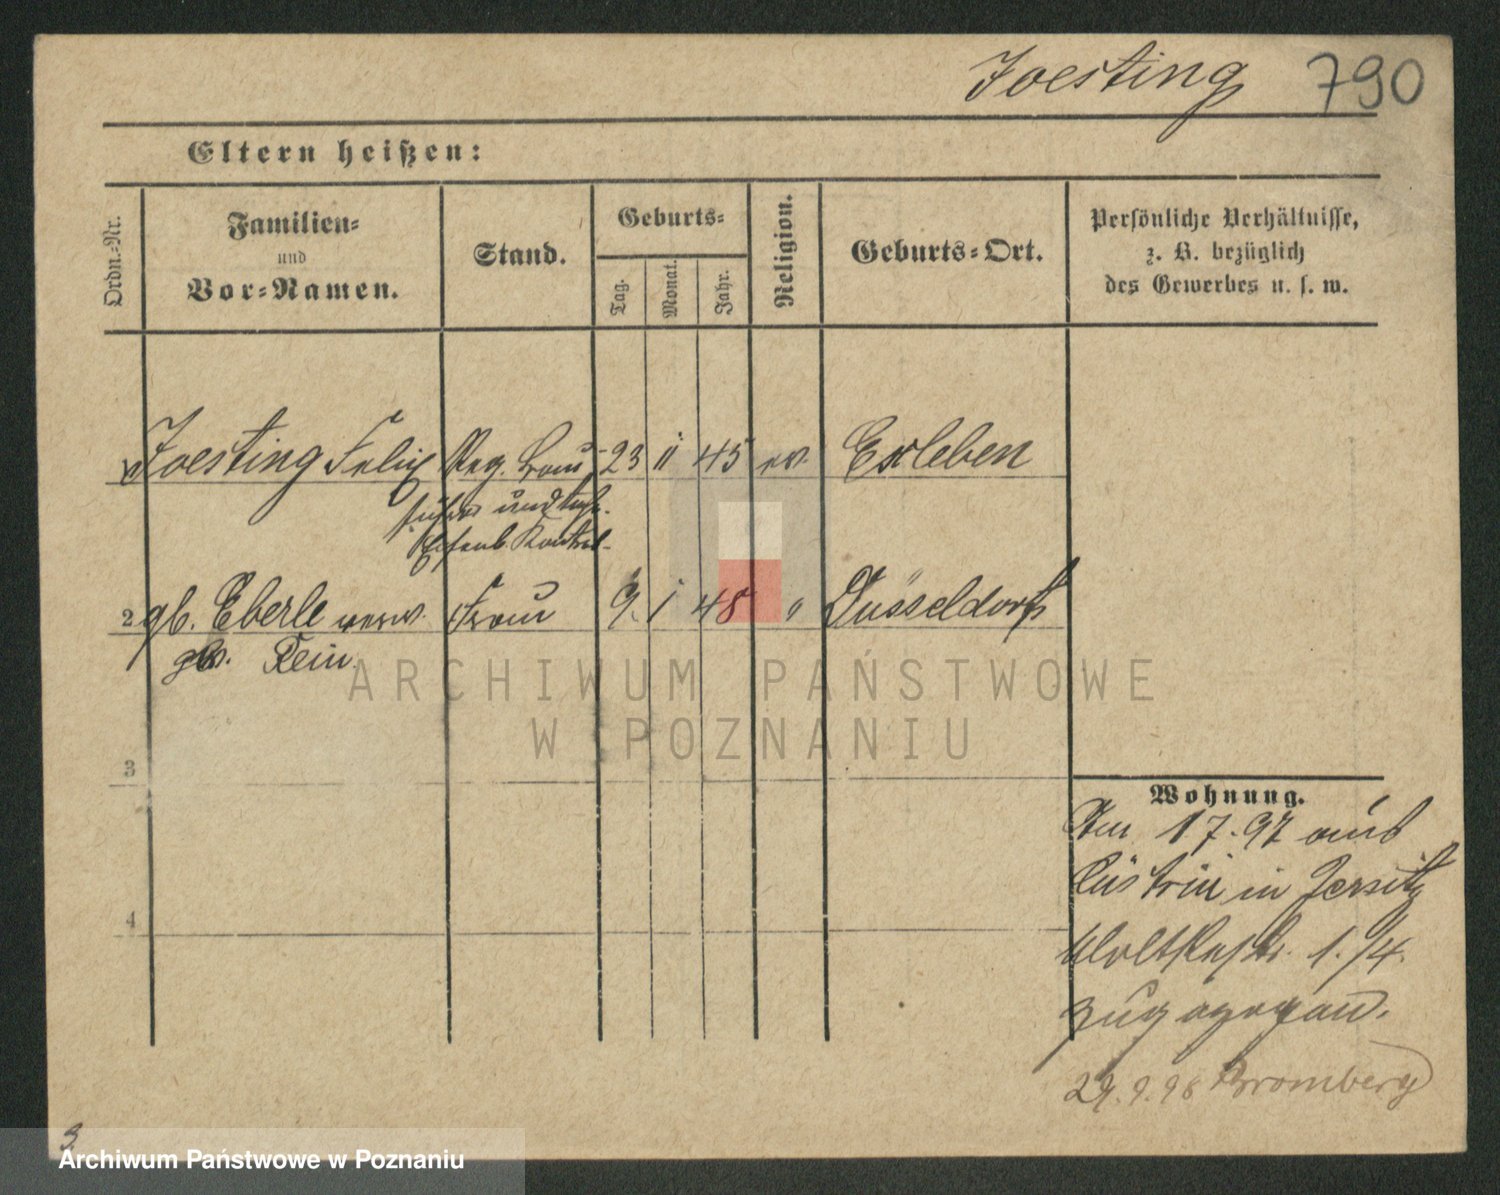 Joesting 790
Eltern heißen:
Ordn.-Nr.
Familien-
und
Vor-Namen.
Stand.
Geburts-
Tag.
Monat.
Jahr.
Religion.
Geburts-Ort.
Persönliche Verhältnisse,
z. B. bezüglich
des Gewerbes u. s. w.
Joesting Felix Reg. 23 11 45 ev. Exleben
und
Eisenb. Kontrol-
2 gb. Eberle verw. Frau 9. 1 48 " Düsseldorf
geb. Tein
ARCHIWUM PAŃSTWOWE
W POZNANIU
3
Wohnung.
Am 1 7. 97 aus
Cüstrin in Jersitz
Moltkestr. 1./4.
zugezogen.
4
29. 9. 98 Bromberg
3
Archiwum Państwowe w Poznaniu